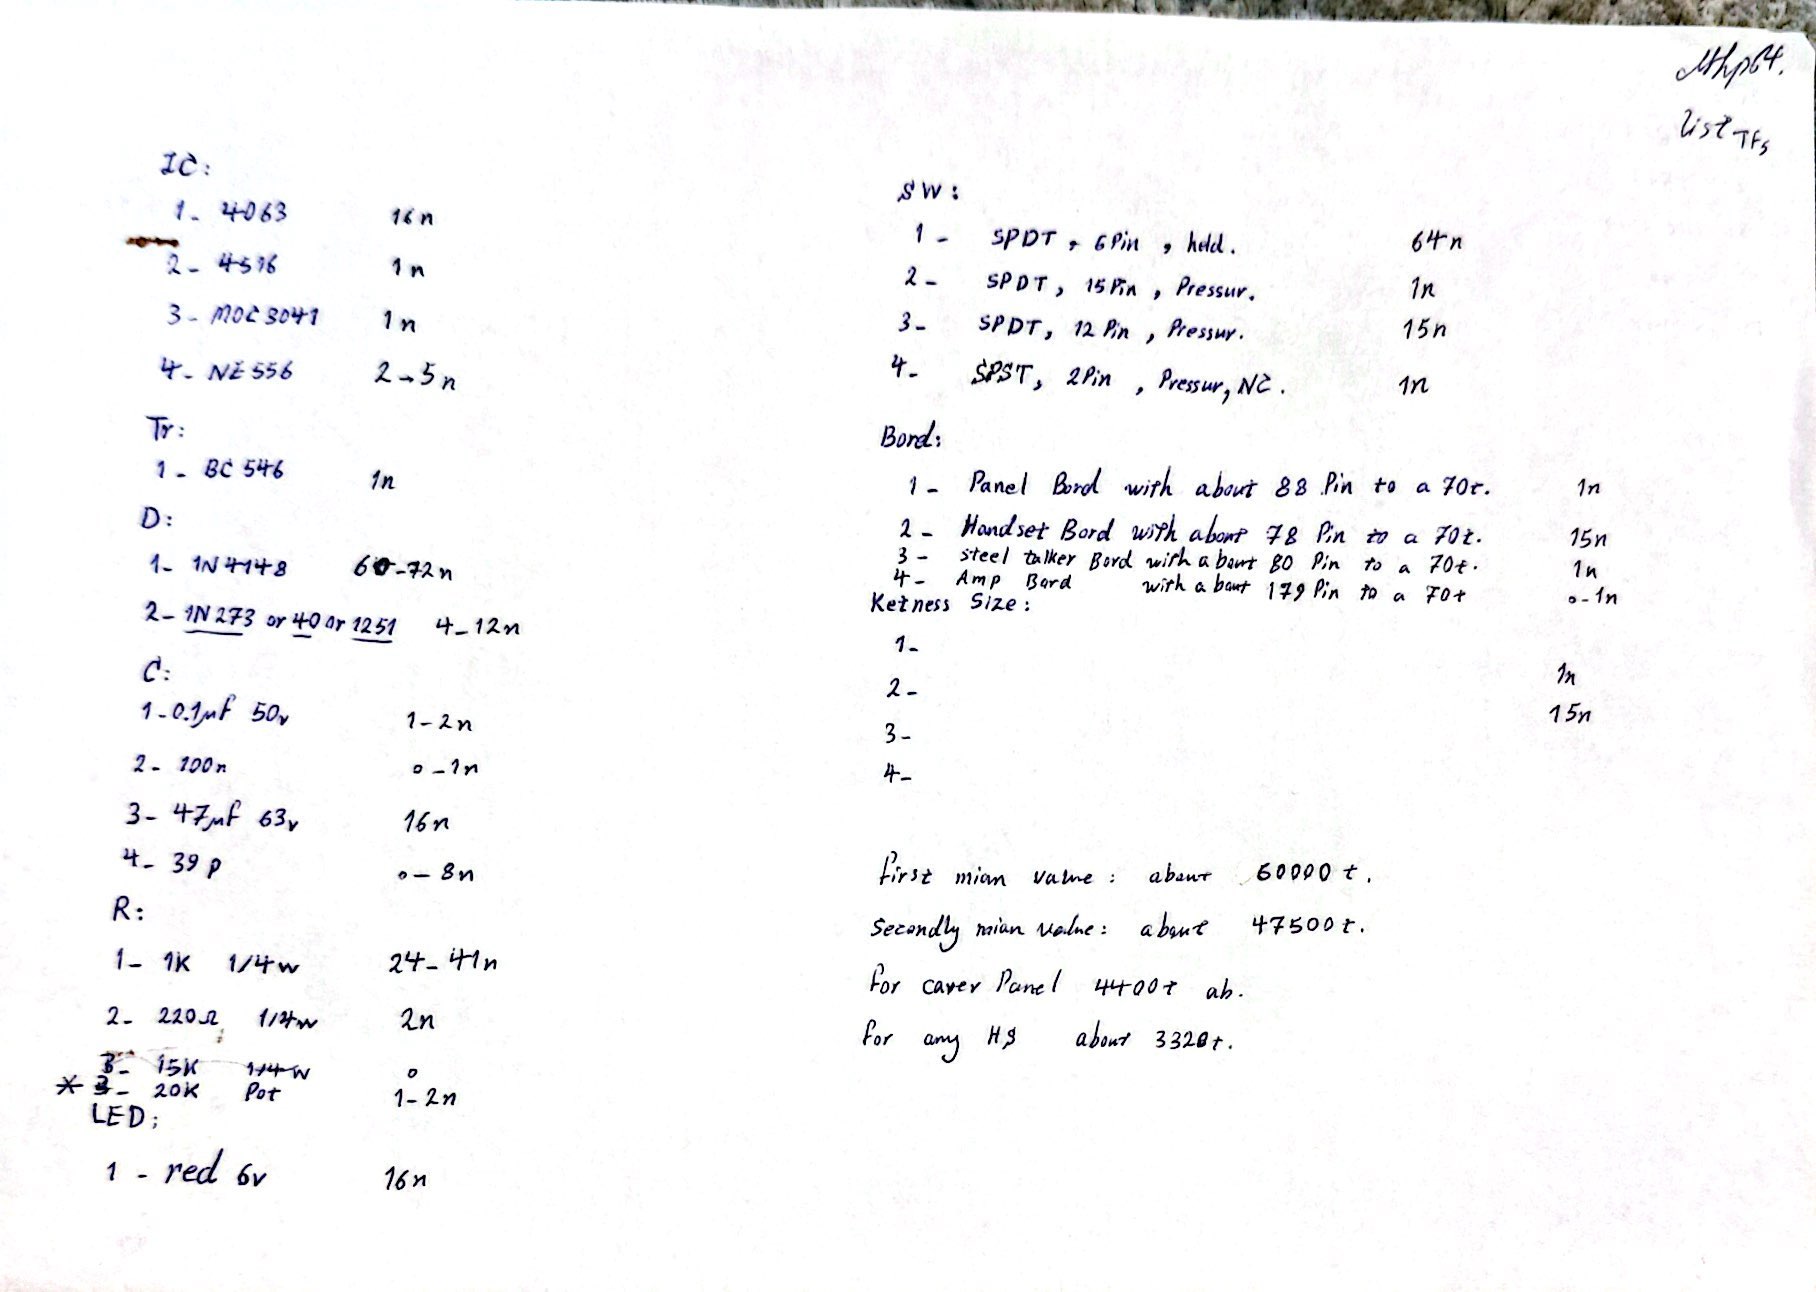 list TFs
IC:
1- 4063 16n
2- 4516 1n
3- MOC3041 1n
4- NE556 2→5n
Tr:
1- BC546 1n
D:
1- 1N4148 60-72n
2- 1N273 or 40 or 1251 4-12n
C:
1-0.1µf 50v 1-2n
2- 100n 0-1n
3- 47µf 63v 16n
4- 39p 0-8n
R:
1- 1K 1/4w 24-41n
2- 220Ω 1/4w 2n
3- 15K 1/4w 0
* 3- 20K Pot 1-2n
LED:
1- red 6v 16n
SW:
1- SPDT, 6Pin, held. 64n
2- SPDT, 15Pin, Pressur. 1n
3- SPDT, 12Pin, Pressur. 15n
4- SPST, 2Pin, Pressur, NC. 1n
Bord:
1- Panel Bord with about 88 Pin to a 70t. 1n
2- Handset Bord with about 78 Pin to a 70t. 15n
3- steel talker Bord with about 80 Pin to a 70t. 1n
4- Amp Bord with about 179 Pin to a 70t 0-1n
Ketness Size:
1-
1n
2-
15n
3-
4-
first mian value: about 60000t.
Secondly mian value: about 47500t.
for caver Panel 4400t ab.
for any HS about 3320t.